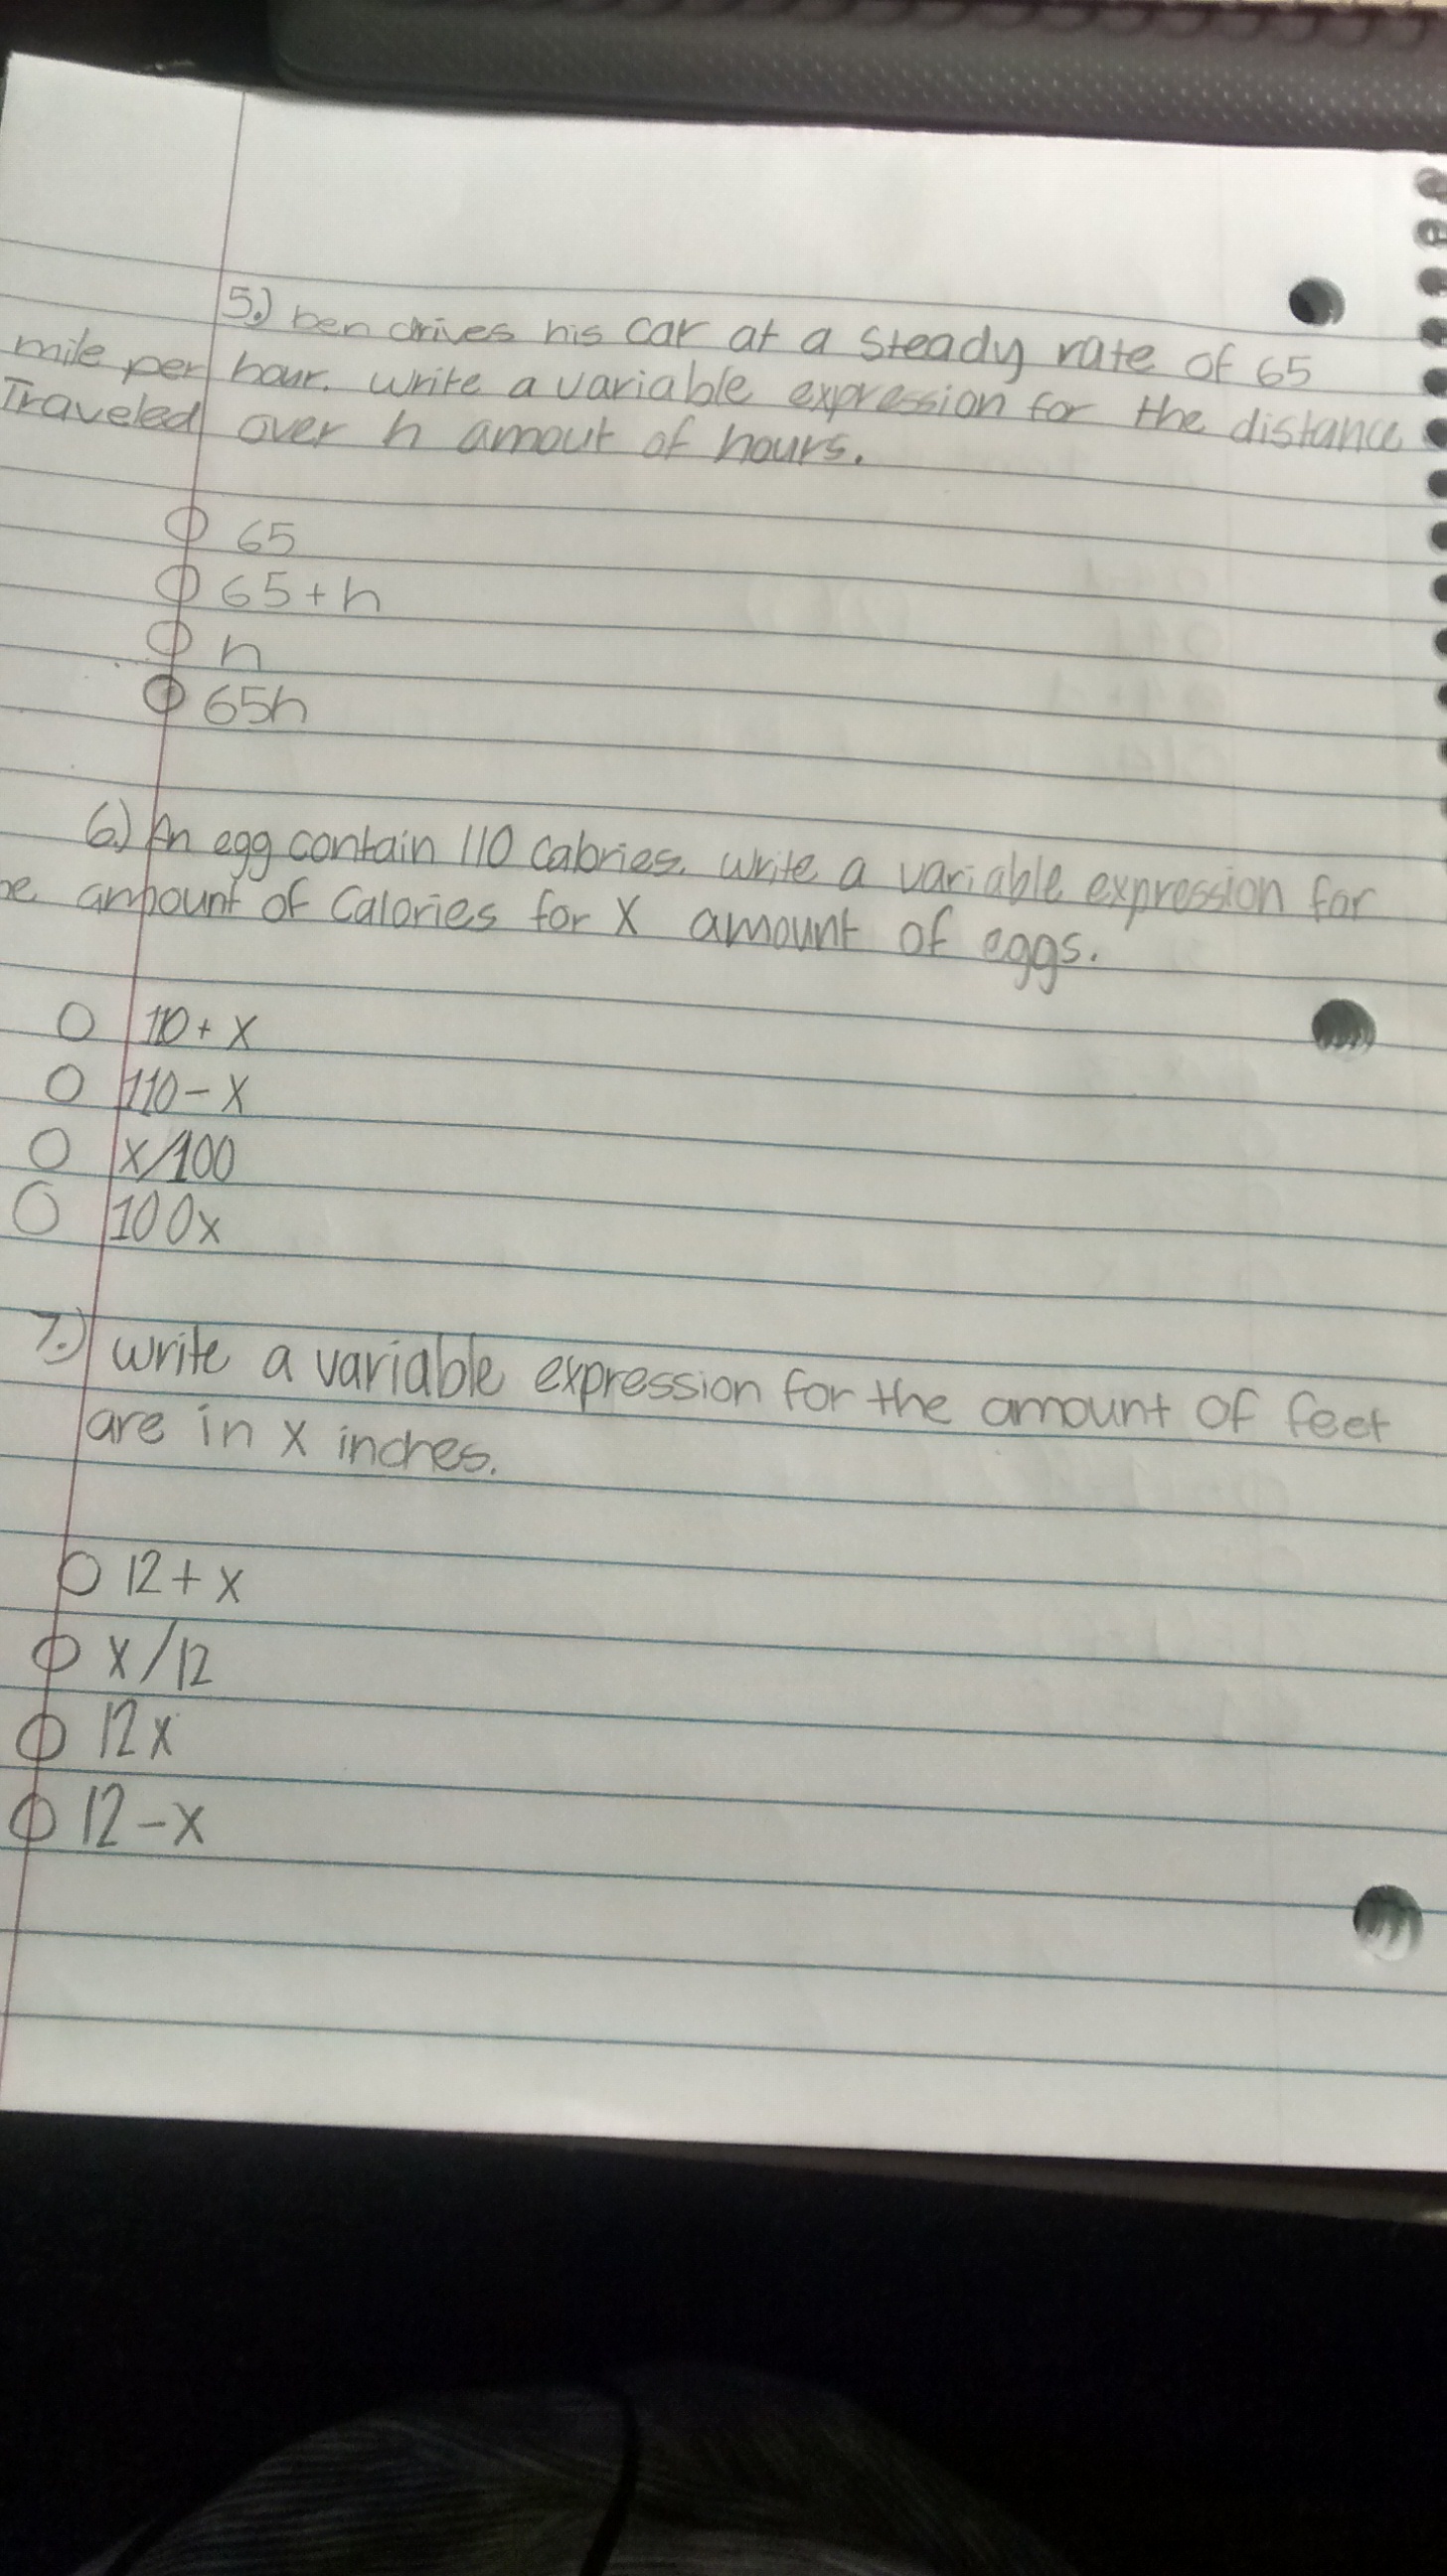 5.) ben drives his car at a steady rate of 65
mile per hour. write a variable expression for the distance
Traveled over h amout of hours.
65
65+h
h
65h
6.) An egg contain 110 calories. write a variable expression for
he amount of Calories for X amount of eggs.
110+x
110-x
x/100
100x
7.) write a variable expression for the amount of feet
are in x inches.
12+x
x/12
12x
12-x